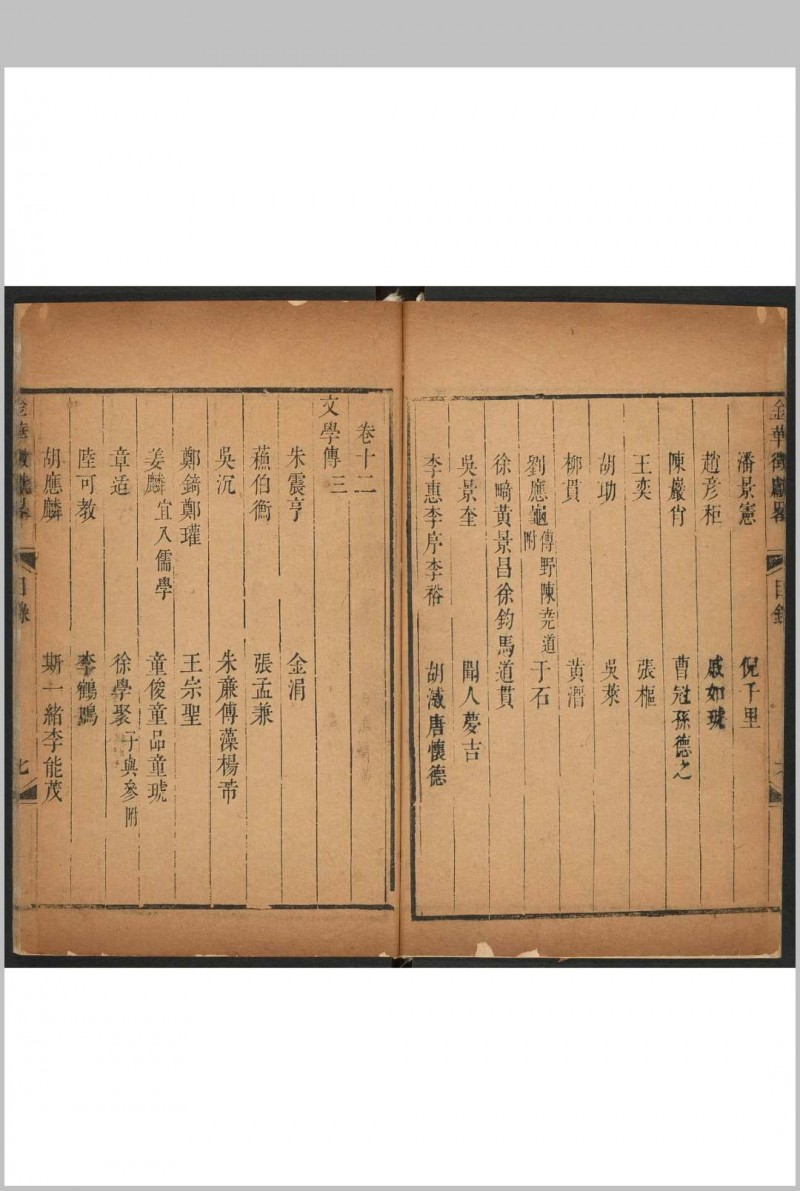 金華徵獻畧 目錄
潘景憲 倪千里
趙彦秬 戚如琥
陳巖肖 曹冠孫德之
王奕 張樞
胡助 吳萊
柳貫 黃溍
劉應龜傅野陳堯道附 于石
徐畸黃景昌徐鈞馬道貫
吳景奎 聞人夢吉
李惠李序李裕 胡減唐懷德
卷十二
文學傳三
朱震亨 金涓
蘓伯衡 張孟兼
吳沉 朱亷傅藻楊芾
鄭錡鄭瓘 王宗聖
姜麟宜入儒學 童俊童品童琥
章适 徐學聚子與參附
陸可教 李鶴鳴
胡應麟 斯一緒李能茂
金華徵獻畧 目錄 七